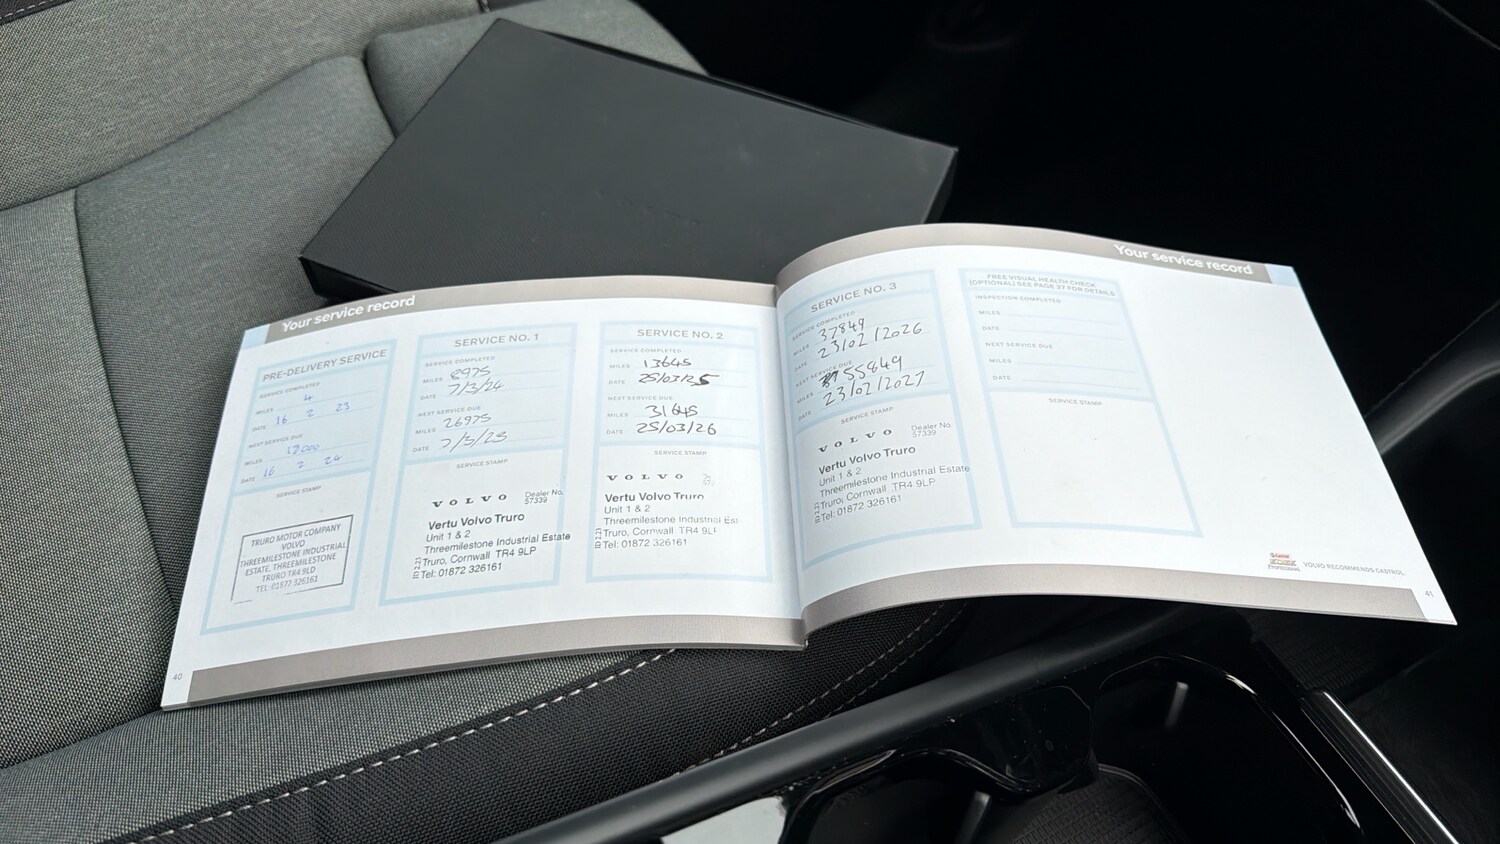 Your service record
PRE-DELIVERY SERVICE
SERVICE COMPLETED
MILES 4
DATE 16 2 23
NEXT SERVICE DUE
MILES 18000
DATE 16 2 24
SERVICE STAMP
TRURO MOTOR COMPANY
VOLVO
THREEMILESTONE INDUSTRIAL
ESTATE, THREEMILESTONE
TRURO TR4 9LD
TEL: 01872 326161
SERVICE NO. 1
SERVICE COMPLETED
MILES 8975
DATE 7/3/24
NEXT SERVICE DUE
MILES 26975
DATE 7/3/25
SERVICE STAMP
VOLVO Dealer No.
57339
Vertu Volvo Truro
Unit 1 & 2
Threemilestone Industrial Estate
Truro, Cornwall TR4 9LP
Tel: 01872 326161
SERVICE NO. 2
SERVICE COMPLETED
MILES 13645
DATE 25/03/25
NEXT SERVICE DUE
MILES 31645
DATE 25/03/26
SERVICE STAMP
VOLVO
Vertu Volvo Truro
Unit 1 & 2
Threemilestone Industrial Est
Truro, Cornwall TR4 9LP
Tel: 01872 326161
40
Your service record
SERVICE NO. 3
SERVICE COMPLETED
MILES 37849
DATE 23/02/2026
NEXT SERVICE DUE
MILES 55849
DATE 23/02/2027
SERVICE STAMP
VOLVO Dealer No.
57339
Vertu Volvo Truro
Unit 1 & 2
Threemilestone Industrial Estate
Truro, Cornwall TR4 9LP
Tel: 01872 326161
FREE VISUAL HEALTH CHECK
(OPTIONAL) SEE PAGE 37 FOR DETAILS
INSPECTION COMPLETED
MILES
DATE
NEXT SERVICE DUE
MILES
DATE
SERVICE STAMP
Castrol
PROFESSIONAL
VOLVO RECOMMENDS CASTROL.
41